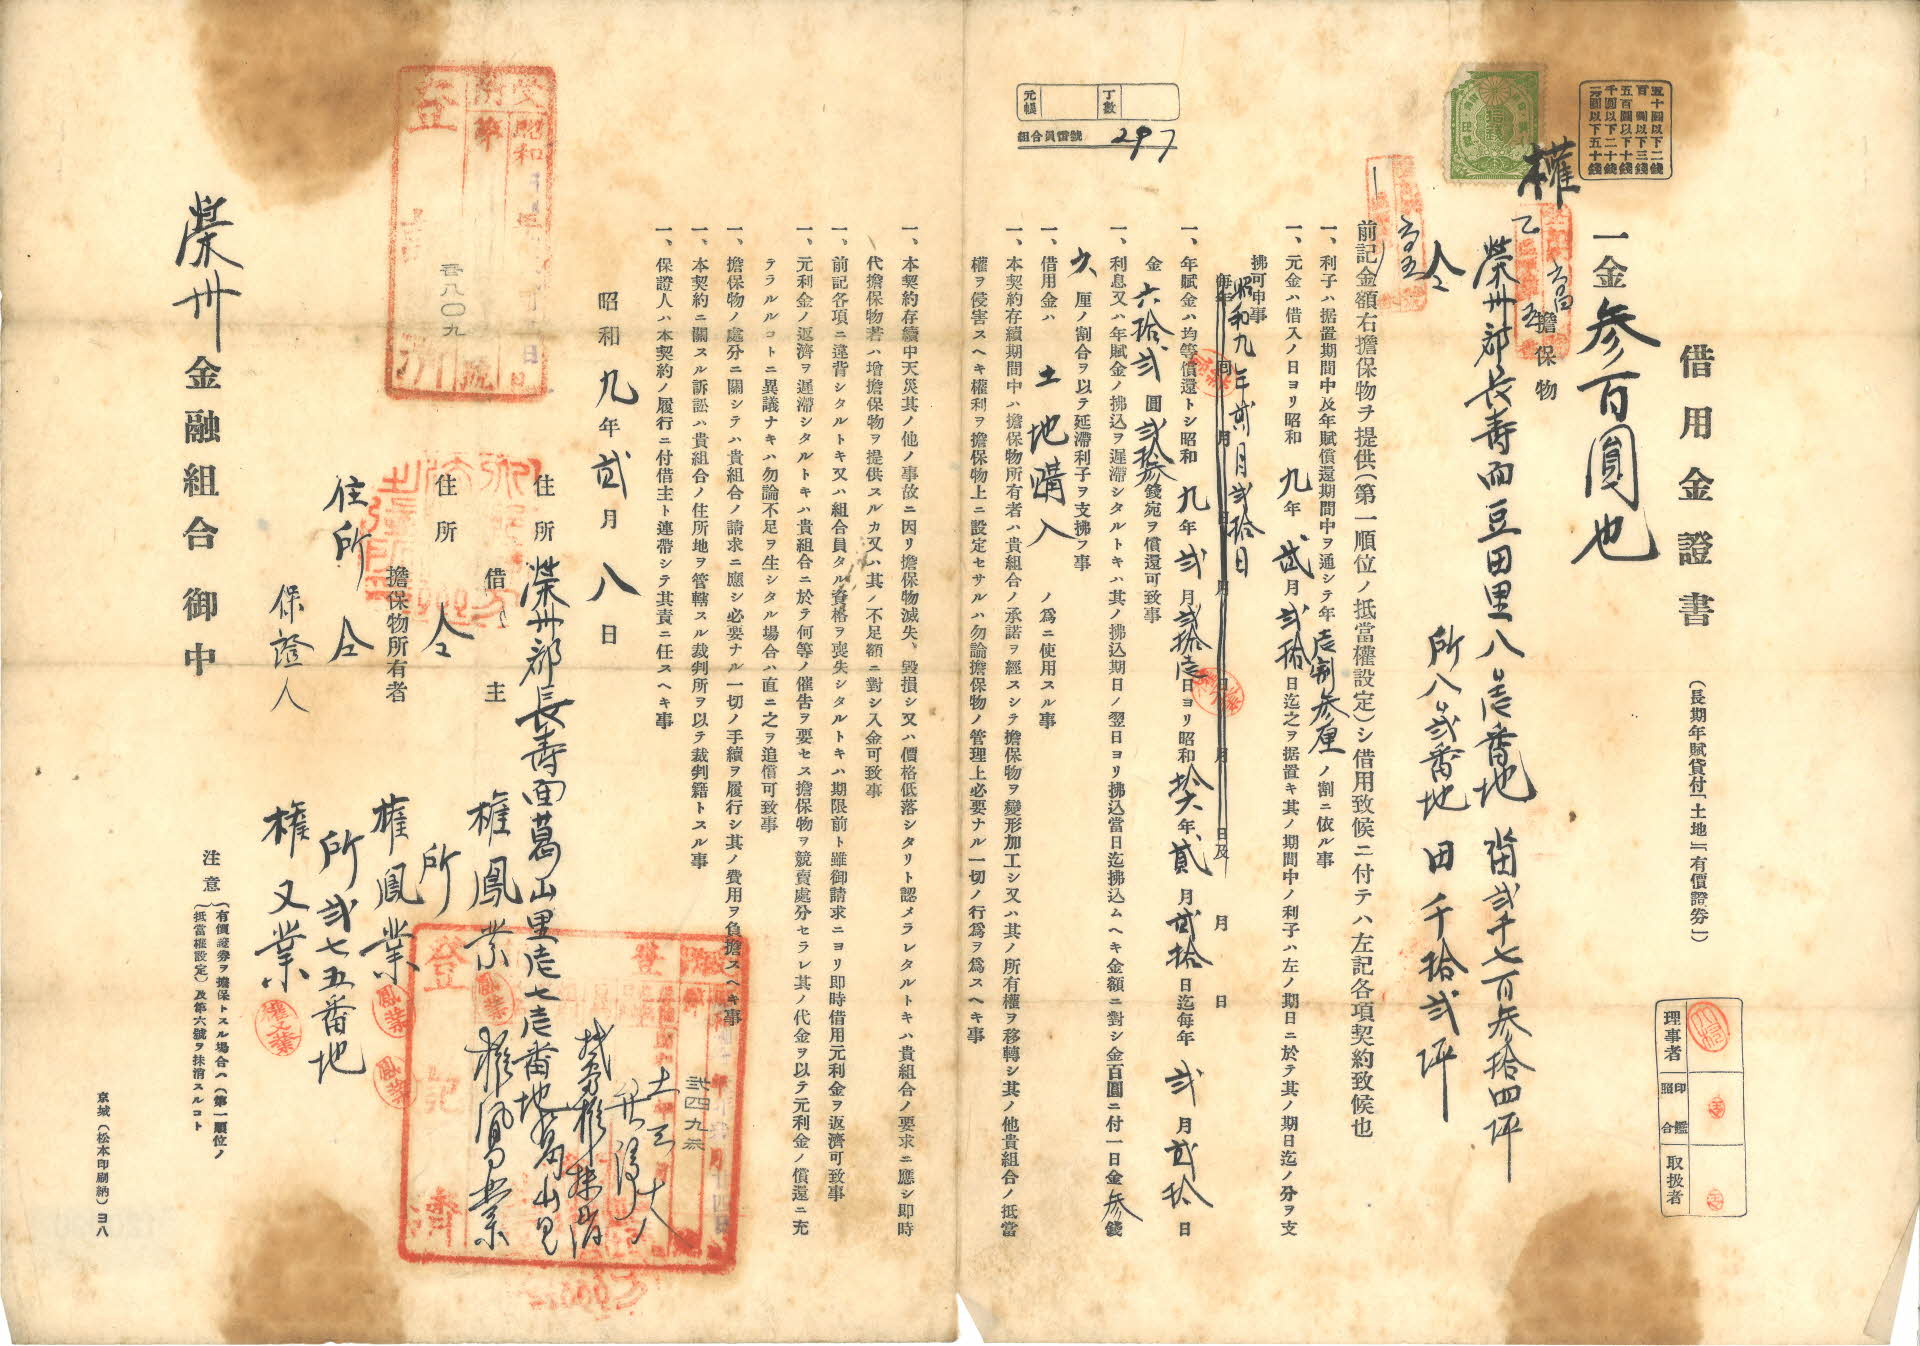 借用金證書
(長期年賦貸付「土地」「有價證券」)
五十圓以下二錢
百圓以下三錢
五百圓以下十錢
千圓以下二十錢
二千圓以下五十錢
一金參百圓也
權
擔保物
榮州郡長壽面豆田里八〇壱番地 畓貳千七百參拾四坪
仝 所八〇貳番地 田千拾貳坪
前記金額右擔保物ヲ提供(第一順位ノ抵當權設定)シ借用致候ニ付テハ左記各項契約致候也
一、利子ハ据置期間中及年賦償還期間中ヲ通シテ年壱割參厘ノ割ニ依ル事
一、元金ハ借入ノ日ヨリ昭和九年貳月貳拾日迄之ヲ据置キ其ノ期間中ノ利子ハ左ノ期日ニ於テ其ノ期日迄ノ分ヲ支
拂可申事
昭和九年貳月貳拾日
每年 同月 日 月 日 月 日及 月 日
一、年賦金ハ均等償還トシ昭和九年貳月貳拾壱日ヨリ昭和拾六年貳月貳拾日迄每年貳月貳拾日
金六拾貳圓貳拾參錢宛ヲ償還可致事
一、利息又ハ年賦金ノ拂込ヲ遲滯シタルトキハ其ノ拂込期日ノ翌日ヨリ拂込當日迄拂込ムヘキ金額ニ對シ金百圓ニ付一日金參錢
六厘ノ割合ヲ以テ延滯利子ヲ支拂フ事
一、借用金ハ土地購入ノ爲ニ使用スル事
一、本契約存續期間中ハ擔保物所有者ハ貴組合ノ承諾ヲ經スシテ擔保物ヲ變形加工シ又ハ其ノ所有權ヲ移轉シ其ノ他貴組合ノ抵當
權ヲ侵害スヘキ權利ヲ擔保物上ニ設定セサルハ勿論擔保物ノ管理上必要ナル一切ノ行爲ヲ爲スヘキ事
元帳 丁數
組合員番號 297
一、本契約存續中天災其ノ他ノ事故ニ因リ擔保物滅失、毀損シ又ハ價格低落シタリト認メラレタルトキハ貴組合ノ要求ニ應シ卽時
代擔保物若ハ增擔保物ヲ提供スルカ又ハ其ノ不足額ニ對シ入金可致事
一、前記各項ニ違背シタルトキ又ハ組合員タル資格ヲ喪失シタルトキハ期限前ト雖御請求ニヨリ卽時借用元利金ヲ返濟可致事
一、元利金ノ返濟ヲ遲滯シタルトキハ貴組合ニ於テ何等ノ催告ヲ要セス擔保物ヲ競賣處分セラレ其ノ代金ヲ以テ元利金ノ償還ニ充
テラルルコトニ異議ナキハ勿論不足ヲ生シタル場合ハ直ニ之ヲ追償可致事
一、擔保物ノ處分ニ關シテハ貴組合ノ請求ニ應シ必要ナル一切ノ手續ヲ履行シ其ノ費用ヲ負擔スヘキ事
一、本契約ニ關スル訴訟ハ貴組合ノ住所地ヲ管轄スル裁判所ヲ以テ裁判籍トスル事
一、保證人ハ本契約ノ履行ニ付借主ト連帶シテ其責ニ任スヘキ事
昭和九年貳月八日
住所 榮州郡長壽面葛山里壱七壱番地
借主 權鳳業
住所 仝 所
擔保物所有者 權鳳業
住所 仝 所貳七五番地
保證人 權又業
榮州金融組合 御中
注意
(有價證券ヲ擔保トスル場合ハ(第一順位ノ
抵當權設定)及第六號ヲ抹消スルコト
京城(松本印刷納)ヨ八
理事者
印鑑照合
取扱者
登記濟